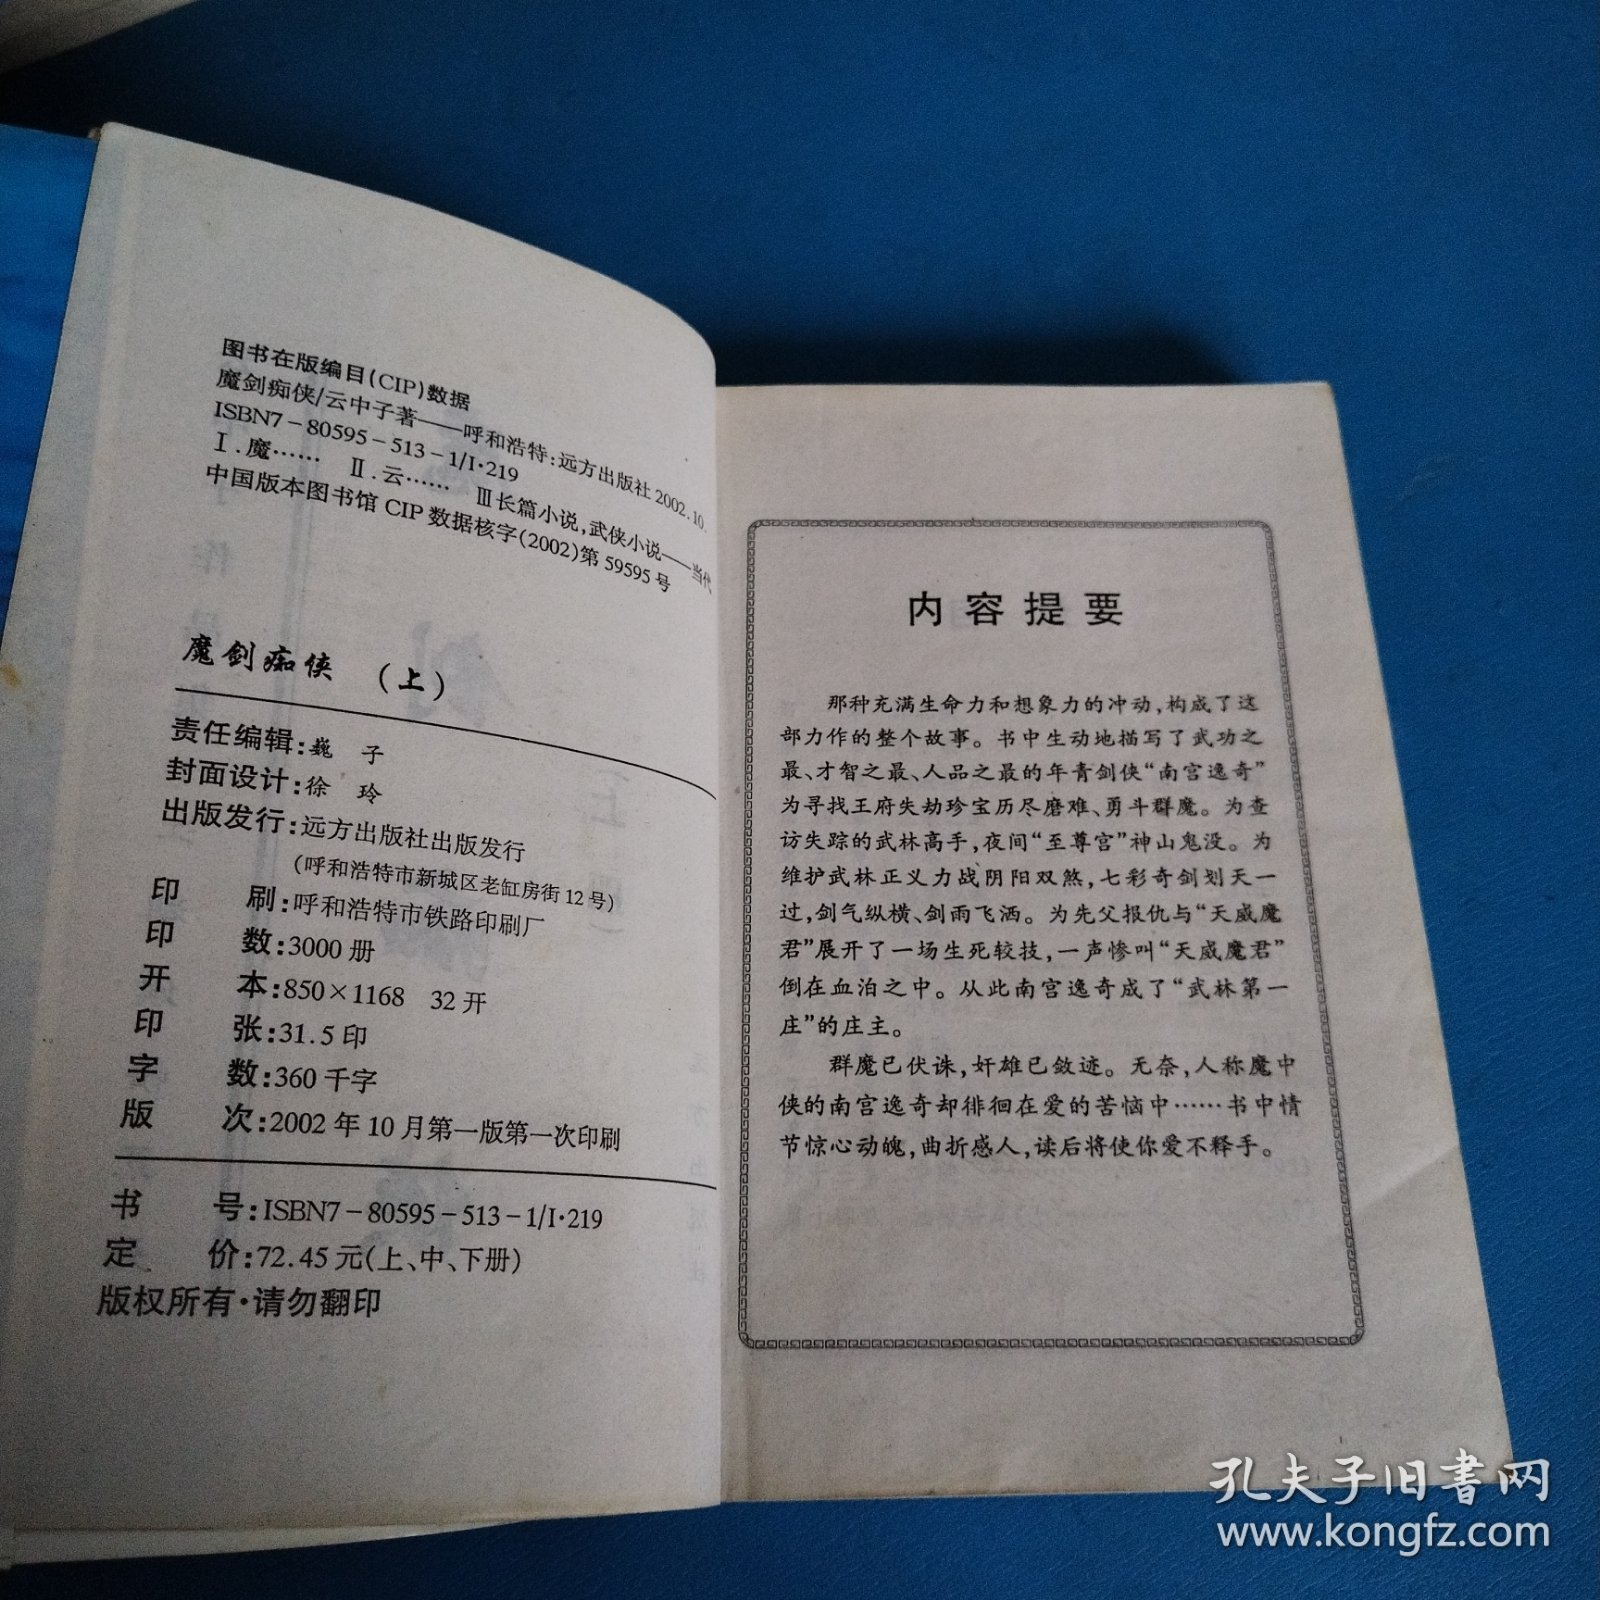 图书在版编目(CIP)数据
魔剑痴侠/云中子著——呼和浩特:远方出版社2002.10.
ISBN7-80595-513-1/I·219
Ⅰ.魔…… Ⅱ.云…… Ⅲ长篇小说,武侠小说——当代
中国版本图书馆CIP数据核字(2002)第59595号
魔剑痴侠 (上)
责任编辑:巍 子
封面设计:徐 玲
出版发行:远方出版社出版发行
(呼和浩特市新城区老缸房街12号)
印 刷:呼和浩特市铁路印刷厂
印 数:3000册
开 本:850×1168 32开
印 张:31.5印
字 数:360千字
版 次:2002年10月第一版第一次印刷
书 号:ISBN7-80595-513-1/I·219
定 价:72.45元(上、中、下册)
版权所有·请勿翻印
内容提要
那种充满生命力和想象力的冲动,构成了这
部力作的整个故事。书中生动地描写了武功之
最、才智之最、人品之最的年青剑侠“南宫逸奇”
为寻找王府失劫珍宝历尽磨难、勇斗群魔。为查
访失踪的武林高手,夜间“至尊宫”神山鬼没。为
维护武林正义力战阴阳双煞,七彩奇剑划天一
过,剑气纵横、剑雨飞洒。为先父报仇与“天威魔
君”展开了一场生死较技,一声惨叫“天威魔君”
倒在血泊之中。从此南宫逸奇成了“武林第一
庄”的庄主。
群魔已伏诛,奸雄已敛迹。无奈,人称魔中
侠的南宫逸奇却徘徊在爱的苦恼中……书中情
节惊心动魄,曲折感人,读后将使你爱不释手。
孔夫子旧书网
www.kongfz.com